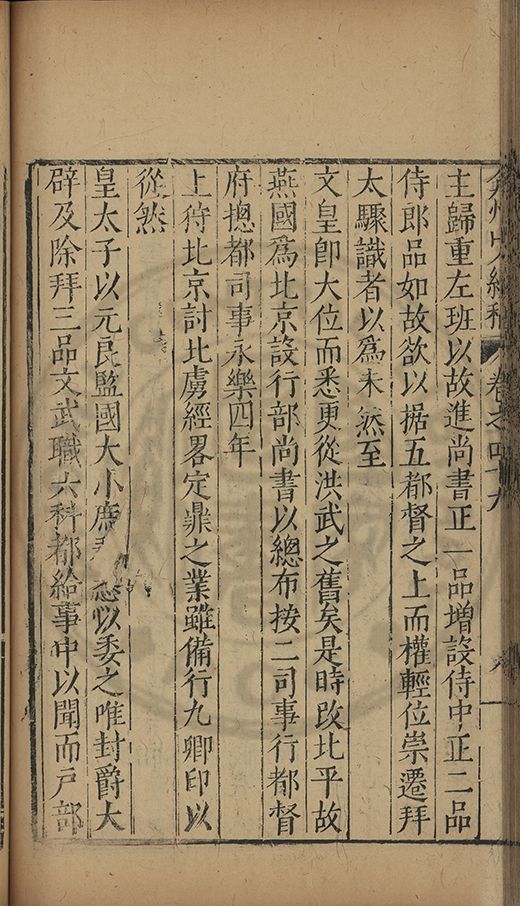 弇州史料 卷之四十九
主歸重左班以故進尚書正一品增設侍中正二品
侍郎品如故欲以据五都督之上而權輕位崇遷拜
太驟識者以爲未然至
文皇卽大位而悉更從洪武之舊矣是時改北平故
燕國爲北京設行部尚書以總布按二司事行都督
府摠都司事永樂四年
上待北京討北虜經畧定鼎之業雖備行九卿印以
從然
皇太子以元良監國大小庶 悉以委之唯封爵大
辟及除拜三品文武職六科都給事中以聞而戸部